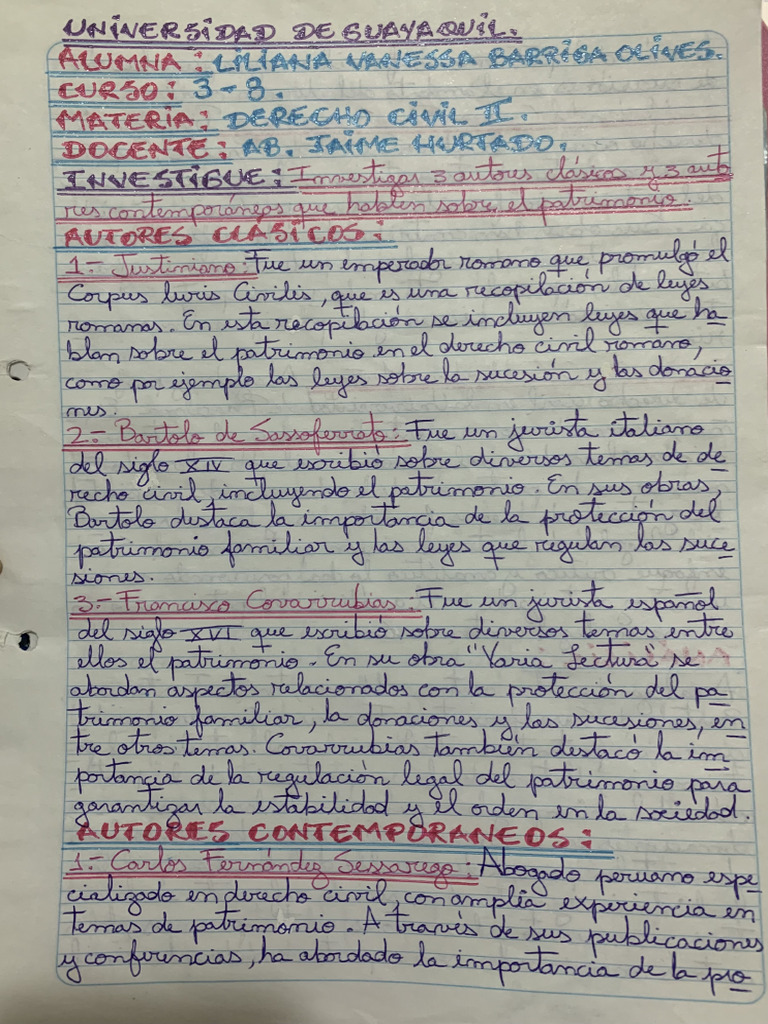 UNIVERSIDAD DE GUAYAQUIL.
ALUMNA: LILIANA VANESSA BARRIGA OLIVES.
CURSO: 3-8.
MATERIA: DERECHO CIVIL II.
DOCENTE: AB. JAIME HURTADO.
INVESTIGUE: Investigar 3 autores clásicos y 3 auto
res contemporáneos que hablen sobre el patrimonio.
AUTORES CLASICOS:
1.- Justiniano: Fue un emperador romano que promulgó el
Corpus Iuris Civilis, que es una recopilación de leyes
romanas. En esta recopilación se incluyen leyes que ha
blan sobre el patrimonio en el derecho civil romano,
como por ejemplo las leyes sobre la sucesión y las donacio
nes.
2.- Bartolo de Sassoferrato: Fue un jurista italiano
del siglo XIV que escribió sobre diversos temas de de
recho civil, incluyendo el patrimonio. En sus obras,
Bartolo destaca la importancia de la protección del
patrimonio familiar y las leyes que regulan las suce
siones.
3.- Francisco Covarrubias. Fue un jurista español
del siglo XVI que escribió sobre diversos temas entre
ellos el patrimonio. En su obra "Varia Lectura" se
abordan aspectos relacionados con la protección del pa
trimonio familiar, la donaciones y las sucesiones, en
tre otros temas. Covarrubias también destacó la im
portancia de la regulación legal del patrimonio para
garantizar la estabilidad y el orden en la sociedad.
AUTORES CONTEMPORANEOS:
1.- Carlos Fernández Sessarego: Abogado peruano espe
cializado en derecho civil, con amplia experiencia en
temas de patrimonio. A través de sus publicaciones
y conferencias, ha abordado la importancia de la pro